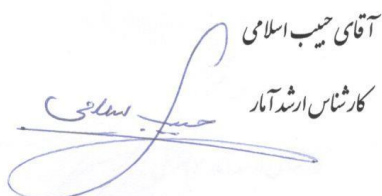 آقای حبیب اسلامی
کارشناس ارشد آمار
حبیب اسلامی